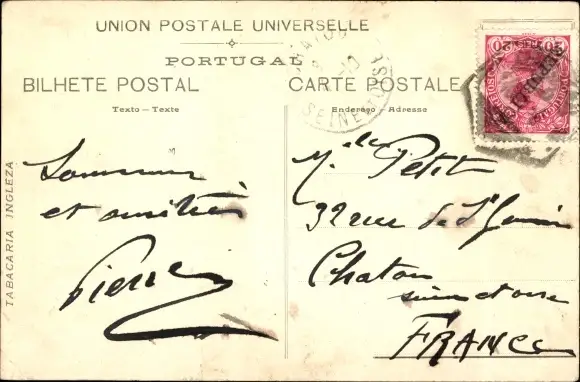 UNION POSTALE UNIVERSELLE
PORTUGAL
BILHETE POSTAL
CARTE POSTALE
Texto — Texte
Endereço — Adresse
TABACARIA INGLEZA
et amitiés
Pierre
Mlle Petit
32 rue de St Germain
Chatou
Seine et Oise
FRANCE
CHATOU
SEINE
REPUBLICA
PORTUGAL
20
20